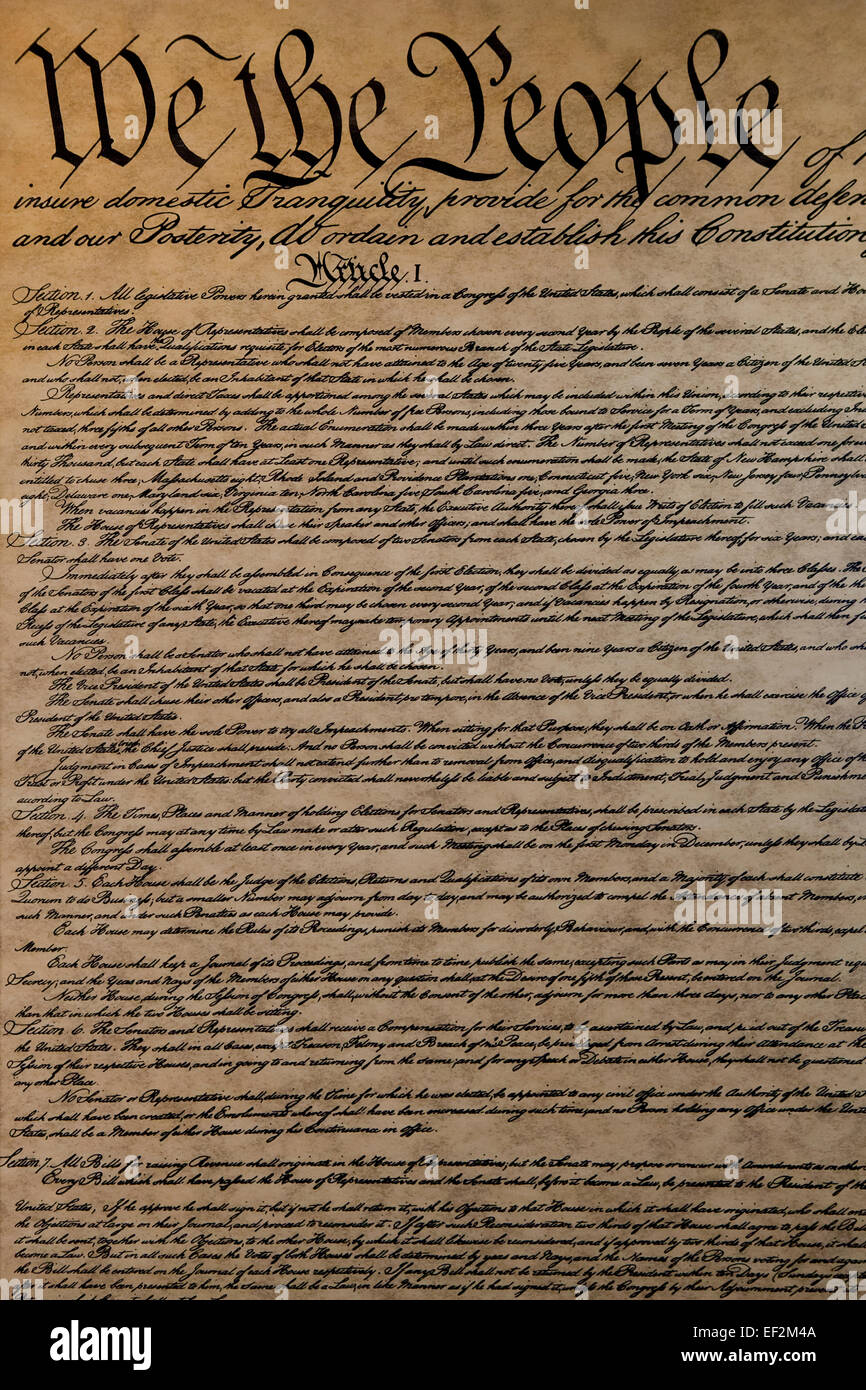 We the People of
insure domestic Tranquility, provide for the common defen
and our Posterity, do ordain and establish this Constitution
Article. I.
Section. 1. All legislative Powers herein granted shall be vested in a Congress of the United States, which shall consist of a Senate and Hou
of Representatives.
Section. 2. The House of Representatives shall be composed of Members chosen every second Year by the People of the several States, and the Ele
in each State shall have Qualifications requisite for Electors of the most numerous Branch of the State Legislature.
No Person shall be a Representative who shall not have attained to the Age of twenty five Years, and been seven Years a Citizen of the United Sta
and who shall not, when elected, be an Inhabitant of that State in which he shall be chosen.
Representatives and direct Taxes shall be apportioned among the several States which may be included within this Union, according to their respective
Numbers, which shall be determined by adding to the whole Number of free Persons, including those bound to Service for a Term of Years, and excluding Ind
not taxed, three fifths of all other Persons. The actual Enumeration shall be made within three Years after the first Meeting of the Congress of the United
and within every subsequent Term of ten Years, in such Manner as they shall by Law direct. The Number of Representatives shall not exceed one for ev
thirty Thousand, but each State shall have at Least one Representative; and until such enumeration shall be made, the State of New Hampshire shall
entitled to chuse three, Massachusetts eight, Rhode Island and Providence Plantations one, Connecticut five, New York six, New Jersey four, Pennsylvan
eight, Delaware one, Maryland six, Virginia ten, North Carolina five, South Carolina five, and Georgia three.
When vacancies happen in the Representation from any State, the Executive Authority thereof shall issue Writs of Election to fill such Vacancies.
The House of Representatives shall chuse their Speaker and other Officers; and shall have the sole Power of Impeachment.
Section. 3. The Senate of the United States shall be composed of two Senators from each State, chosen by the Legislature thereof, for six Years; and eac
Senator shall have one Vote.
Immediately after they shall be assembled in Consequence of the first Election, they shall be divided as equally as may be into three Classes. The
of the Senators of the first Class shall be vacated at the Expiration of the second Year, of the second Class at the Expiration of the fourth Year, and of the th
Class at the Expiration of the sixth Year, so that one third may be chosen every second Year; and if Vacancies happen by Resignation, or otherwise, during the
Recess of the Legislature of any State, the Executive thereof may make temporary Appointments until the next Meeting of the Legislature, which shall then fil
such Vacancies.
No Person shall be a Senator who shall not have attained to the Age of thirty Years, and been nine Years a Citizen of the United States, and who shal
not, when elected, be an Inhabitant of that State for which he shall be chosen.
The Vice President of the United States shall be President of the Senate, but shall have no Vote, unless they be equally divided.
The Senate shall chuse their other Officers, and also a President pro tempore, in the Absence of the Vice President, or when he shall exercise the Office of
President of the United States.
The Senate shall have the sole Power to try all Impeachments. When sitting for that Purpose, they shall be on Oath or Affirmation. When the P
of the United States, the Chief Justice shall preside: And no Person shall be convicted without the Concurrence of two thirds of the Members present.
Judgment in Cases of Impeachment shall not extend further than to removal from Office, and disqualification to hold and enjoy any Office of h
Trust or Profit under the United States: but the Party convicted shall nevertheless be liable and subject to Indictment, Trial, Judgment and Punishment
according to Law.
Section. 4. The Times, Places and Manner of holding Elections for Senators and Representatives, shall be prescribed in each State by the Legislat
thereof; but the Congress may at any time by Law make or alter such Regulations, except as to the Places of chusing Senators.
The Congress shall assemble at least once in every Year, and such Meeting shall be on the first Monday in December, unless they shall by L
appoint a different Day.
Section. 5. Each House shall be the Judge of the Elections, Returns and Qualifications of its own Members, and a Majority of each shall constitute
Quorum to do Business; but a smaller Number may adjourn from day to day, and may be authorized to compel the Attendance of absent Members, in
such Manner, and under such Penalties as each House may provide.
Each House may determine the Rules of its Proceedings, punish its Members for disorderly Behaviour, and, with the Concurrence of two thirds, expel
Member.
Each House shall keep a Journal of its Proceedings, and from time to time publish the same, excepting such Parts as may in their Judgment requ
Secrecy; and the Yeas and Nays of the Members of either House on any question shall, at the Desire of one fifth of those Present, be entered on the Journal.
Neither House, during the Session of Congress, shall, without the Consent of the other, adjourn for more than three days, nor to any other Plac
than that in which the two Houses shall be sitting.
Section. 6. The Senators and Representatives shall receive a Compensation for their Services, to be ascertained by Law, and paid out of the Treasur
the United States. They shall in all Cases, except Treason, Felony and Breach of the Peace, be privileged from Arrest during their Attendance at the
Session of their respective Houses, and in going to and returning from the same; and for any Speech or Debate in either House, they shall not be questioned
any other Place.
No Senator or Representative shall, during the Time for which he was elected, be appointed to any civil Office under the Authority of the United S
which shall have been created, or the Emoluments whereof shall have been encreased during such time; and no Person holding any Office under the Unit
States, shall be a Member of either House during his Continuance in Office.
Section 7. All Bills for raising Revenue shall originate in the House of Representatives; but the Senate may propose or concur with Amendments as on other
Every Bill which shall have passed the House of Representatives and the Senate, shall, before it become a Law, be presented to the President of the
United States; If he approve he shall sign it, but if not he shall return it, with his Objections to that House in which it shall have originated, who shall ent
the Objections at large on their Journal, and proceed to reconsider it. If after such Reconsideration two thirds of that House shall agree to pass the Bill
it shall be sent, together with the Objections, to the other House, by which it shall likewise be reconsidered, and if approved by two thirds of that House, it shall
become a Law. But in all such Cases the Votes of both Houses shall be determined by yeas and Nays, and the Names of the Persons voting for and again
the Bill shall be entered on the Journal of each House respectively. If any Bill shall not be returned by the President within ten Days (Sundays
it shall have been presented to him, the Same shall be a Law, in like Manner as if he had signed it, unless the Congress by their Adjournment preven
alamy
Image ID: EF2M4A
www.alamy.com